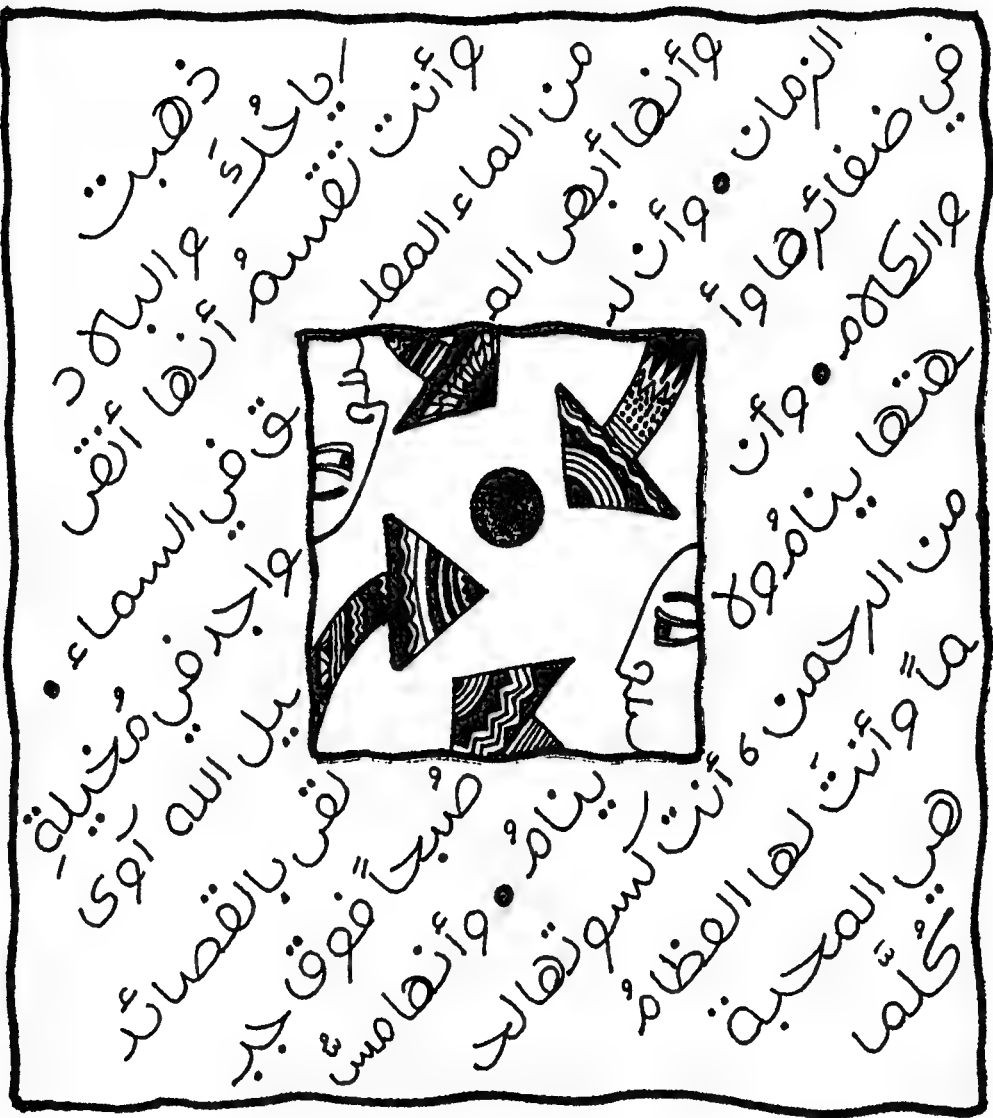 ذهبت
والبلاد
وأنت تقسمُ أنها أنقى
من الماء المعلـق في السماء •
وأنها أنهى المواجد في مُخيلةِ
الزمان • وأن لـيل الله آوى
في ضفائرها وألقى بالقصائد
والكلام • وأن صُبحاً فوق جبـ
هتها ينامُ ولا ينامُ • وأنها مسٌّ
من الرحمن ، أنت كسوتها لحـ
ماً وأنتَ لها العظامُ
هي المحبة
كُلَّما